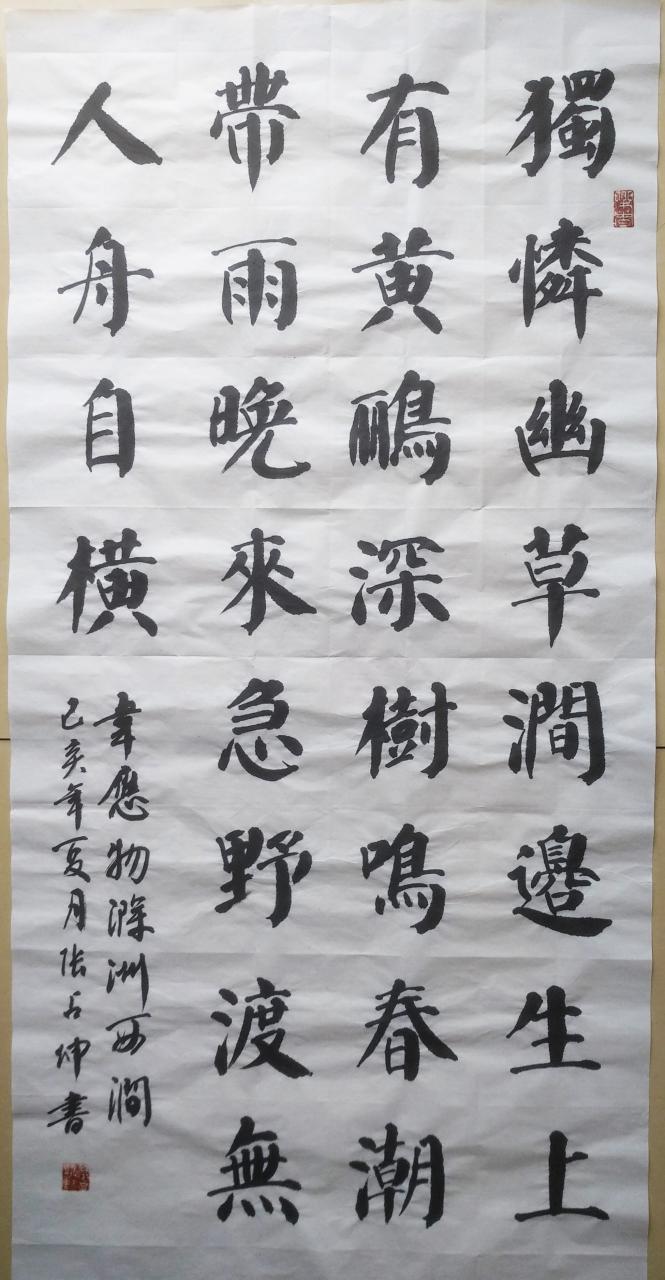 獨憐幽草澗邉生上
有黄鸝深樹鳴春潮
帶雨晚來急野渡無
人舟自橫
韋應物滁洲西澗
己亥年夏月张占坤書